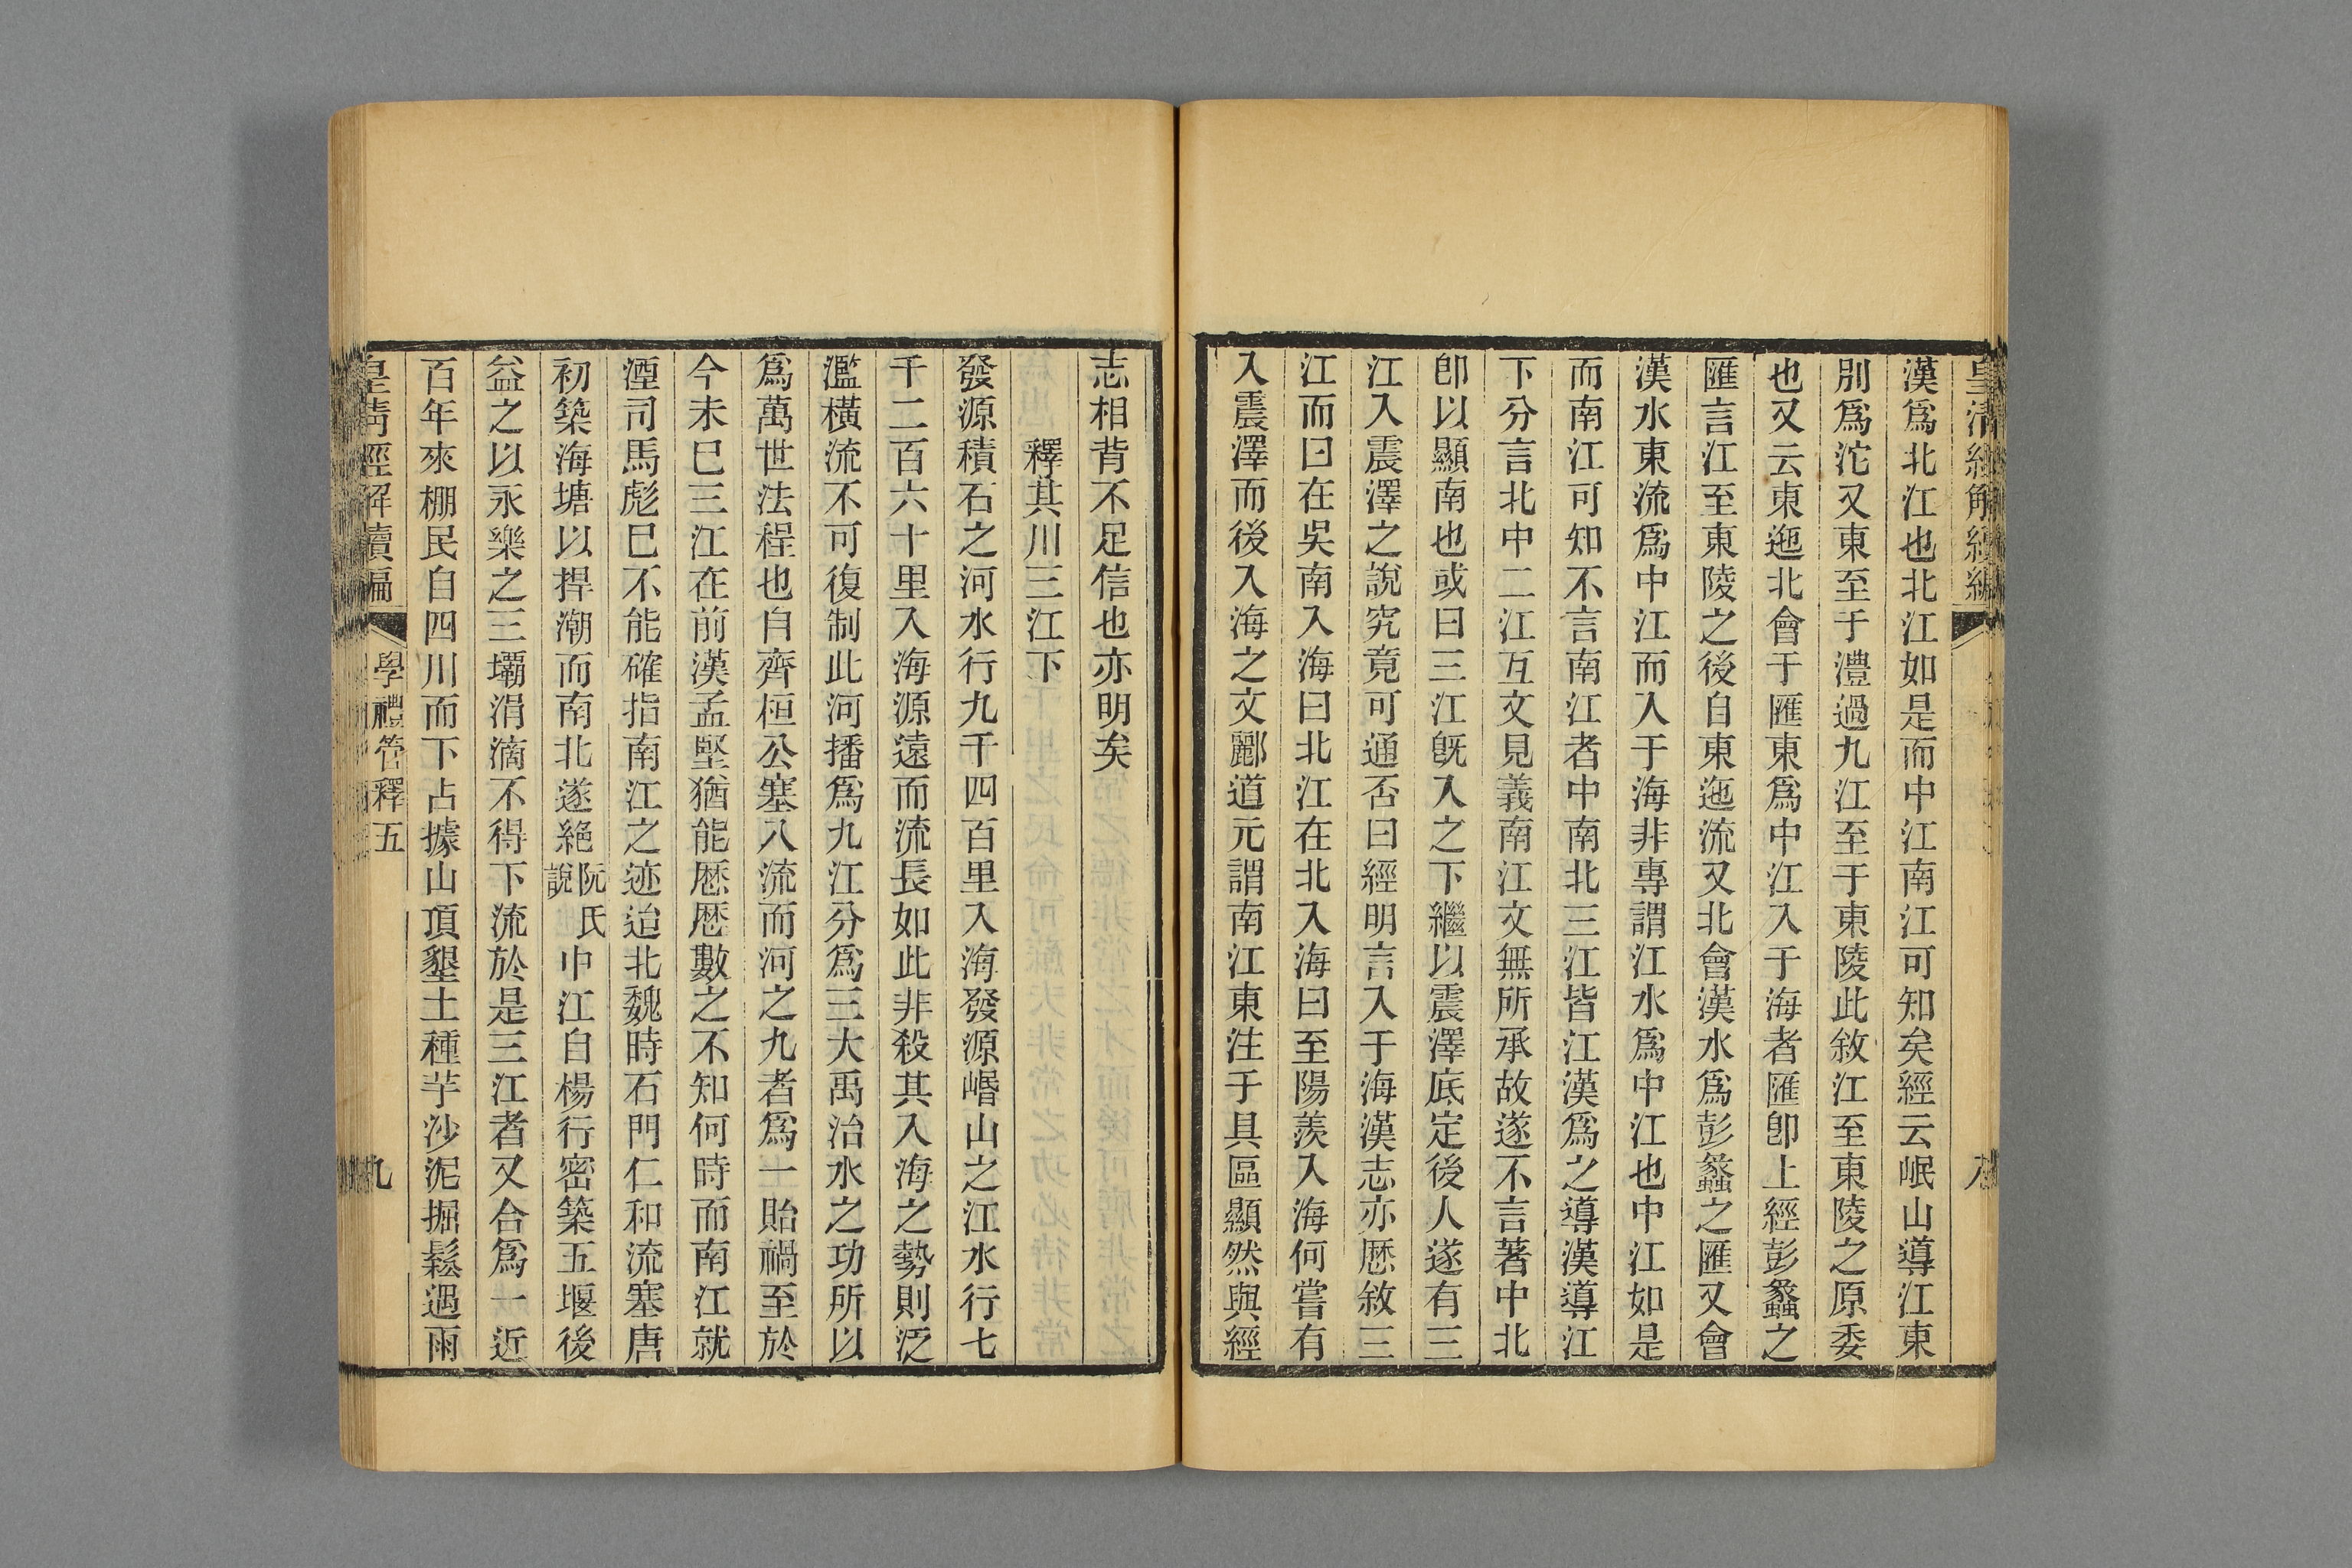 皇清經解續編
八
漢爲北江也北江如是而中江南江可知矣經云岷山導江東
別爲沱又東至于澧過九江至于東陵此敘江至東陵之原委
也又云東迤北會于匯東爲中江入于海者匯卽上經彭蠡之
匯言江至東陵之後自東迤流又北會漢水爲彭蠡之匯又會
漢水東流爲中江而入于海非專謂江水爲中江也中江如是
而南江可知不言南江者中南北三江皆江漢爲之導漢導江
下分言北中二江互文見義南江文無所承故遂不言著中北
卽以顯南也或曰三江旣入之下繼以震澤底定後人遂有三
江入震澤之說究竟可通否曰經明言入于海漢志亦厯敘三
江而曰在吳南入海曰北江在北入海曰至陽羨入海何嘗有
入震澤而後入海之文酈道元謂南江東注于具區顯然與經
志相背不足信也亦明矣
釋其川三江下
發源積石之河水行九千四百里入海發源㟭山之江水行七
千二百六十里入海源遠而流長如此非殺其入海之勢則泛
濫橫流不可復制此河播爲九江分爲三大禹治水之功所以
爲萬世法程也自齊桓公塞八流而河之九者爲一貽禍至於
今未巳三江在前漢孟堅猶能厯厯數之不知何時而南江就
湮司馬彪巳不能確指南江之迹迨北魏時石門仁和流塞唐
初築海塘以捍潮而南北遂絕阮氏說中江自楊行密築五堰後
益之以永樂之三壩涓滴不得下流於是三江者又合爲一近
百年來棚民自四川而下占據山頂墾土種芋沙泥掘鬆遇雨
皇清經解續編
學禮管釋五
九